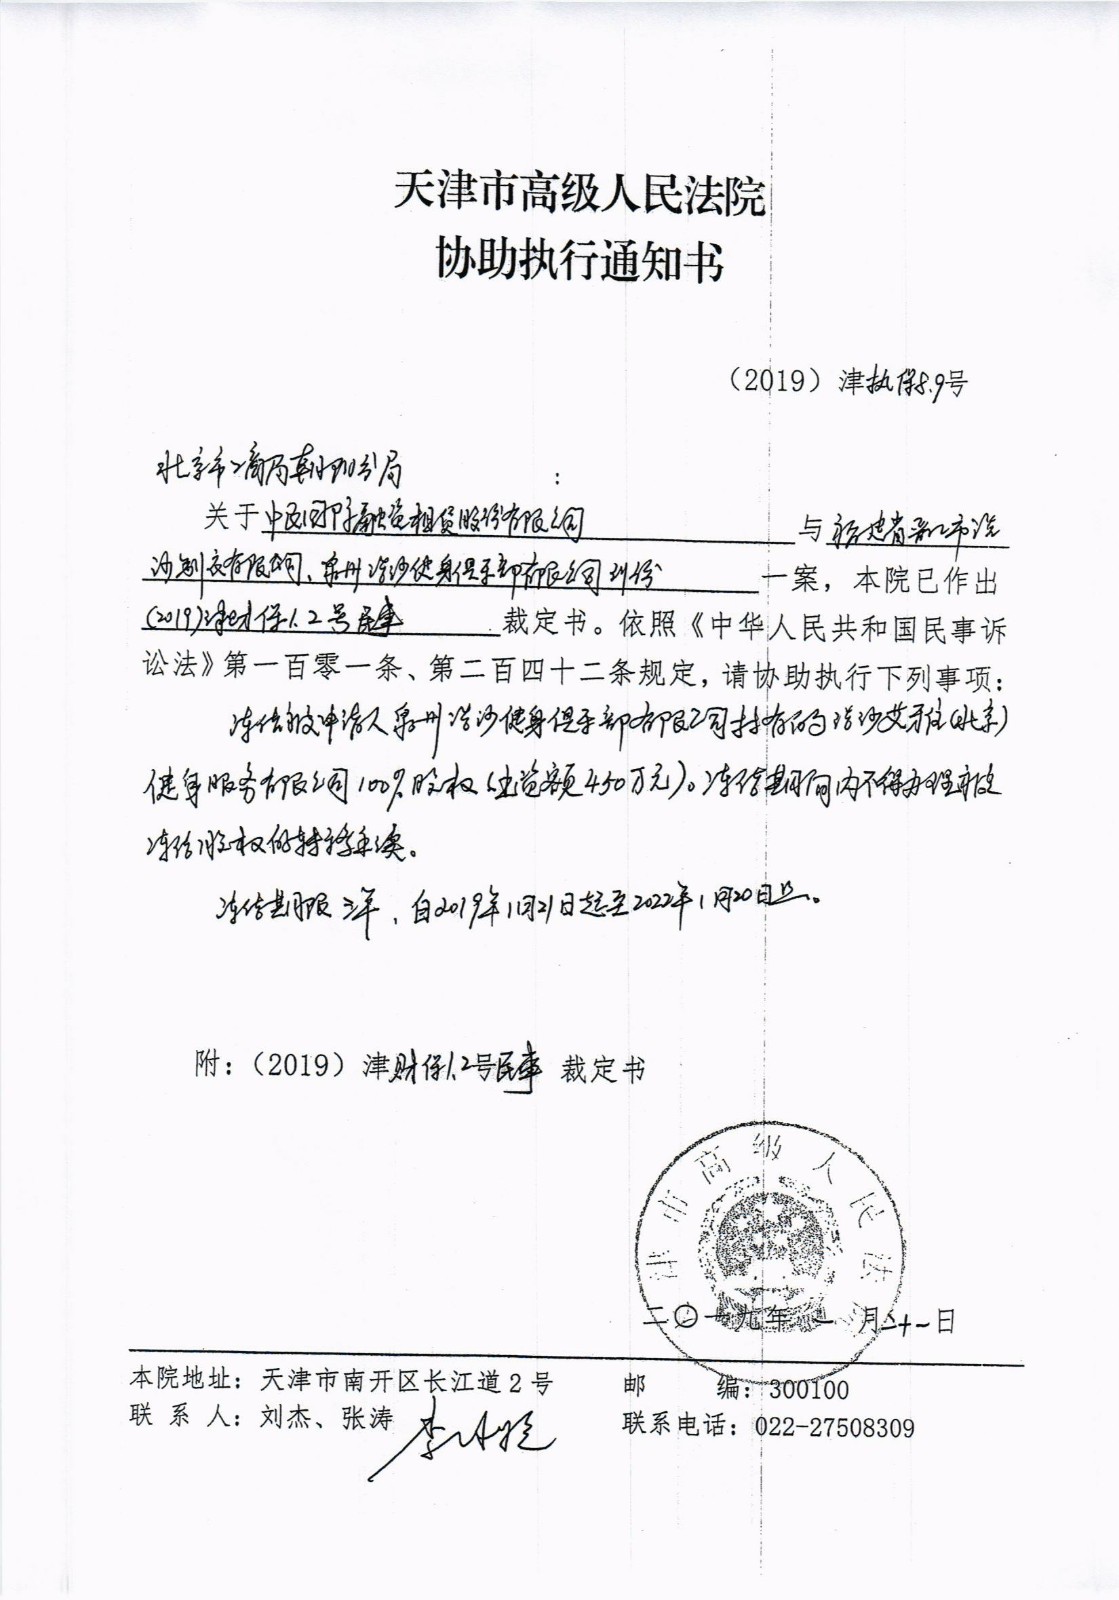 天津市高级人民法院
协助执行通知书
(2019)津执保8.9号
北京市工商局朝阳分局 :
关于中民国际融资租赁股份有限公司 与福建省晋江市浩
沙制衣有限公司、泉州浩沙健身俱乐部有限公司纠份 一案，本院已作出
(2019)津财保1.2号民事 裁定书。依照《中华人民共和国民事诉
讼法》第一百零一条、第二百四十二条规定，请协助执行下列事项：
冻结被申请人泉州浩沙健身俱乐部有限公司持有的浩沙艾玳佳(北京)
健身服务有限公司100%股权(出资额450万元)。冻结期间内不得办理被
冻结股权的转移手续。
冻结期限三年，自2019年1月21日起至2022年1月20日止。
附：(2019)津财保1.2号民事 裁定书
津市高级人民法
二〇一九年一月二十一日
本院地址：天津市南开区长江道2号 邮 编：300100
联 系 人：刘杰、张涛 联系电话：022-27508309